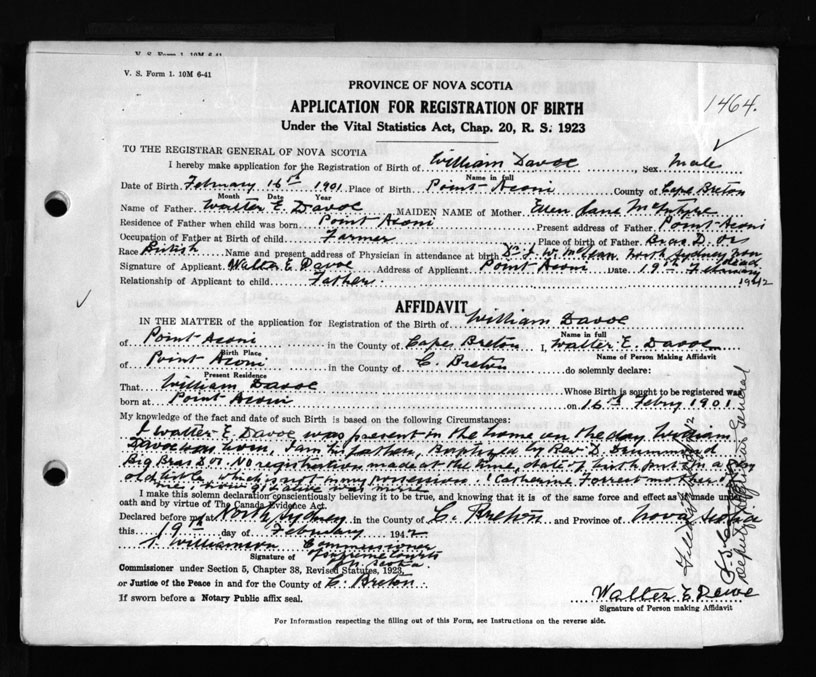 V. S. Form 1. 10M 6-41
V. S. Form 1. 10M 6-41
PROVINCE OF NOVA SCOTIA
1464.
APPLICATION FOR REGISTRATION OF BIRTH
Under the Vital Statistics Act, Chap. 20, R. S. 1923
TO THE REGISTRAR GENERAL OF NOVA SCOTIA
I hereby make application for the Registration of Birth of William Davoe, Sex male
Name in full
Date of Birth February 16th 1901 Place of Birth Point Aconi County of Cape Breton
Month Date Year
Name of Father Walter E Davoe MAIDEN NAME of Mother Ellen Jane McIntyre
Residence of Father when child was born Point Aconi Present address of Father Point Aconi
Occupation of Father at Birth of child Farmer Place of birth of Father Bras D. Or
Race British Name and present address of Physician in attendance at birth Dr. J. W. McLean North Sydney now dead
Signature of Applicant Walter E Davoe Address of Applicant Point Aconi Date 19th February 1942
Relationship of Applicant to child Father.
AFFIDAVIT
IN THE MATTER of the application for Registration of the Birth of William Davoe
Name in full
of Point Aconi in the County of Cape Breton I, Walter E. Davoe
Birth Place Name of Person Making Affidavit
of Point Aconi in the County of C. Breton do solemnly declare:
Present Residence
That William Davoe Whose Birth is sought to be registered was
born at Point Aconi on 16th Febry 1901
My knowledge of the fact and date of such Birth is based on the following Circumstances:
I Walter E. Davoe was present in the home on the day William
Davoe was born, I am his father, Baptized by Rev D. Drummond
Big Bras D Or. No registration made at the time, date of birth put in a
old bible and is not in my possession. (Catherine Forrest mother
I make this solemn declaration conscientiously believing it to be true, and knowing that it is of the same force and effect as if made under
oath and by virtue of The Canada Evidence Act.
Declared before me at North Sydney in the County of C. Breton and Province of Nova Scotia
this 19th day of February 1942
Williamson Commissioner
Signature of Supreme Courts
Commissioner under Section 5, Chapter 38, Revised Statutes, 1923,
N. Scotia.
or Justice of the Peace in and for the County of C. Breton.
If sworn before a Notary Public affix seal.
Walter E Davoe
Signature of Person making Affidavit
For Information respecting the filling out of this Form, see Instructions on the reverse side.
Deputy Registrar General